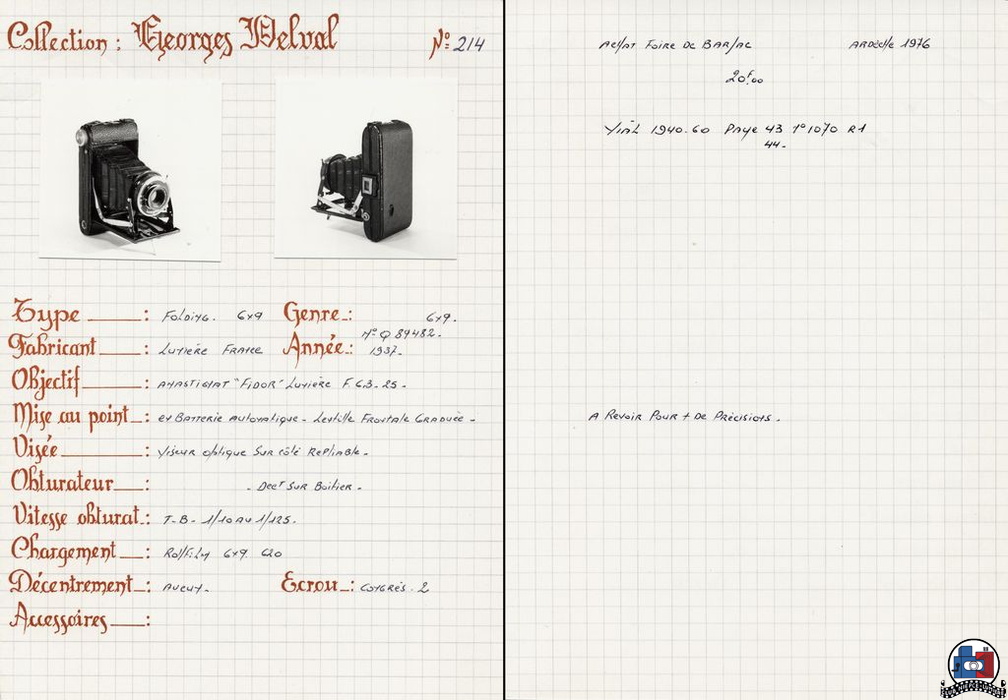 Collection : Georges Delval
N° 214
Type : Folding. 6x9 Genre : 6x9.
N° Q 89482.
Fabricant : Lumière France Année : 1937.
Objectif : Anastigmat "Fidor" Lumière F 6.3 - 25 -
Mise au point : en Batterie automatique - Lentille Frontale Graduée -
Visée : Viseur optique sur côté Repliable -
Obturateur : - Dect sur Boitier -
Vitesse obturat. : T - B - 1/10 au 1/125.
Chargement : Rollfilm 6x9 620
Décentrement : Aucun - Ecrou : Congrès. 2
Accessoires :
Achat Foire de Barjac Ardèche 1976
20F,00
Vial 1940.60 Page 43 N° 1070 R1
44 -
A Revoir Pour + De Précisions -